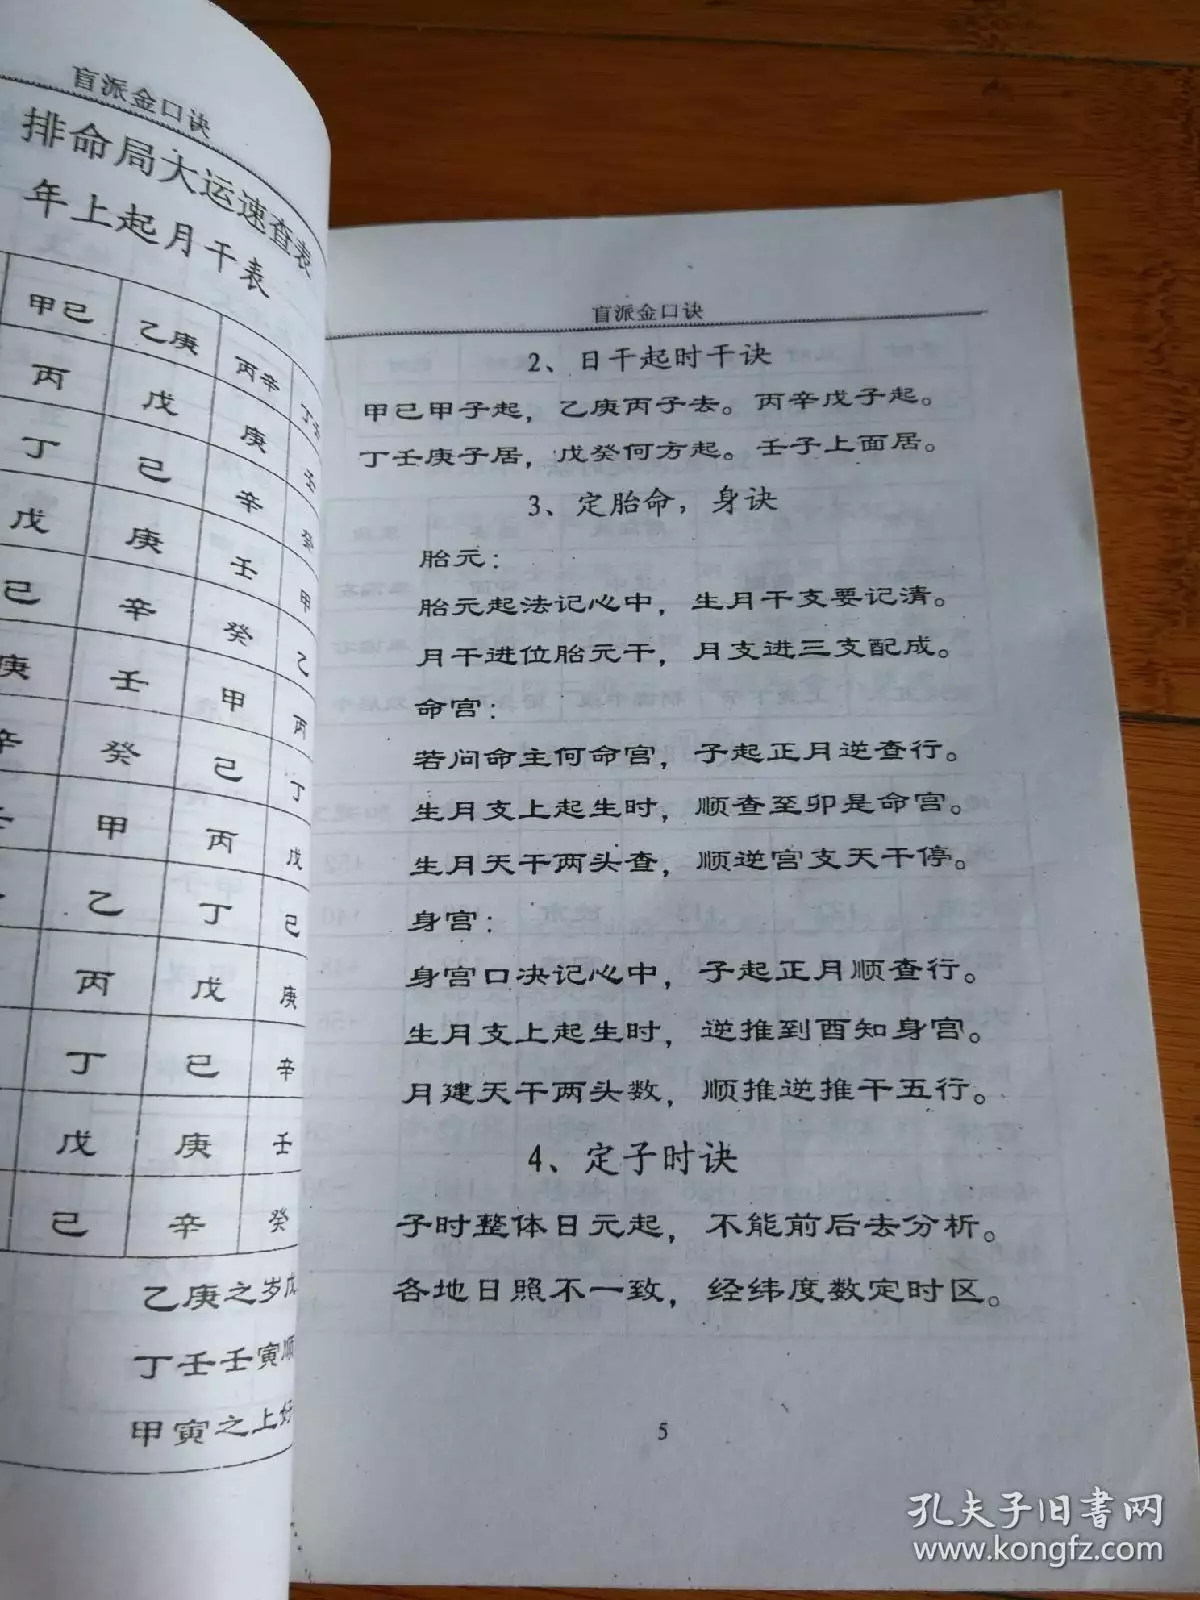 盲派金口诀
排命局大运速查表
年上起月干表
甲己 乙庚 丙辛
丙 戊 庚 壬
丁 己 辛 癸
戊 庚 壬 甲
己 辛 癸 乙
庚 壬 甲 丙
辛 癸 己 丁
壬 甲 丙 戊
乙 丁 己
丙 戊 庚
丁 己 辛
戊 庚 壬
己 辛 癸
乙庚之岁戊
丁壬壬寅顺
甲寅之上好
盲派金口诀
2、日干起时干诀
甲己甲子起，乙庚丙子去。丙辛戊子起。
丁壬庚子居，戊癸何方起。壬子上面居。
3、定胎命，身诀
胎元：
胎元起法记心中，生月干支要记清。
月干进位胎元干，月支进三支配成。
命宫：
若问命主何命宫，子起正月逆查行。
生月支上起生时，顺查至卯是命宫。
生月天干两头查，顺逆宫支天干停。
身宫：
身宫口决记心中，子起正月顺查行。
生月支上起生时，逆推到酉知身宫。
月建天干两头数，顺推逆推干五行。
4、定子时诀
子时整体日元起，不能前后去分析。
各地日照不一致，经纬度数定时区。
5
孔夫子旧书网
www.kongfz.com